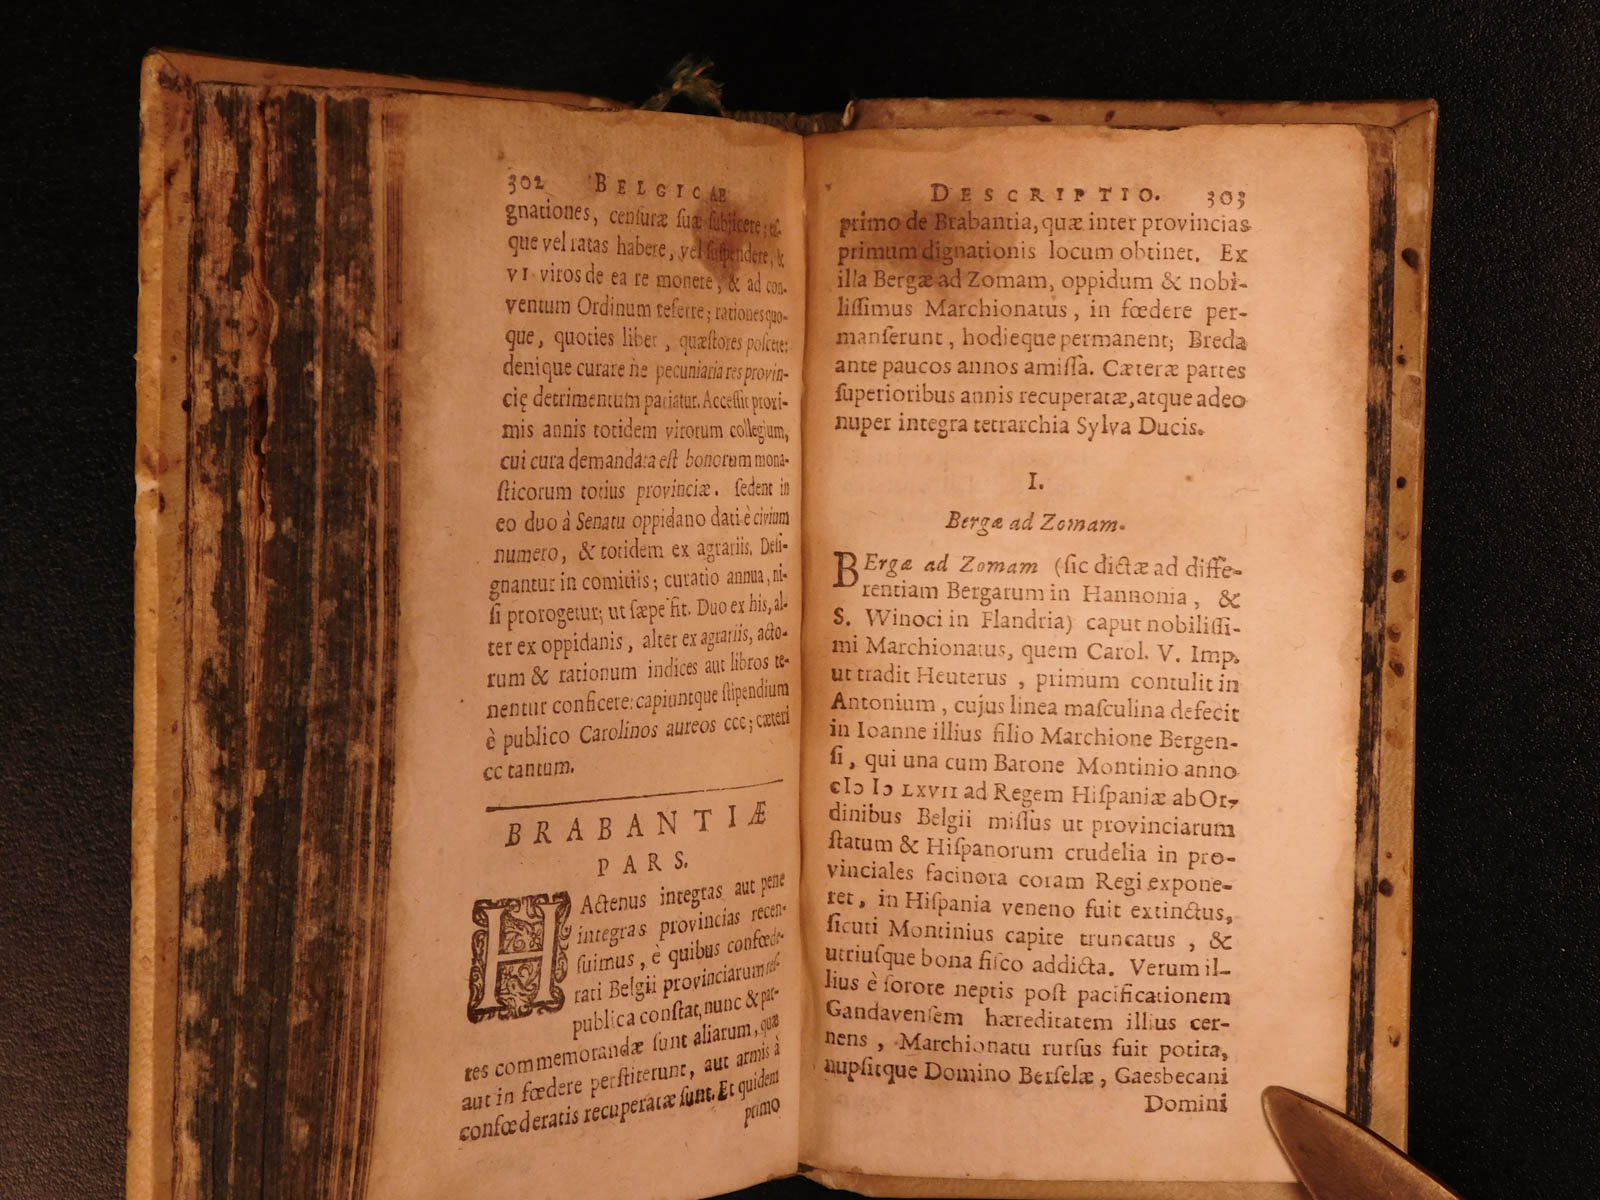 302 BELGICAE
gnationes, cenſuræ ſuæ ſubjicere; eſ-
que vel ratas habere, vel ſuſpendere, &
VI viros de ea re monere, & ad con-
ventum Ordinum referre; rationes quo-
que, quoties libet, quæſtores poſcere:
denique curare ne pecuniaria res provin-
cię detrimentum patiatur. Acceſſit proxi-
mis annis totidem virorum collegium,
cui cura demandata eſt bonorum mona-
ſticorum totius provinciæ. ſedent in
eo duo à Senatu oppidano dati è civium
numero, & totidem ex agrariis. Deſi-
gnantur in comitiis; curatio annua, ni-
ſi prorogetur; ut ſæpe fit. Duo ex his, al-
ter ex oppidanis, alter ex agrariis, acto-
rum & rationum indices aut libros te-
nentur conficere: capiuntque ſtipendium
è publico Carolinos aureos ccc; cæteri
cc tantum.
BRABANTIÆ
PARS.
HActenus integras aut pene
integras provincias recen-
ſuimus, è quibus confœde-
rati Belgii provinciarum reſ-
publica conſtat, nunc & par-
tes commemorandæ ſunt aliarum, quæ
aut in fœdere perſtiterunt, aut armis à
confœderatis recuperatæ ſunt. Et quidem
primo
DESCRIPTIO. 303
primo de Brabantia, quæ inter provincias
primum dignationis locum obtinet. Ex
illa Bergæ ad Zomam, oppidum & nobi-
liſſimus Marchionatus, in fœdere per-
manſerunt, hodieque permanent; Breda
ante paucos annos amiſſa. Cæteræ partes
ſuperioribus annis recuperatæ, atque adeo
nuper integra tetrarchia Sylva Ducis.
I.
Bergæ ad Zomam.
BErgæ ad Zomam (ſic dictæ ad diffe-
rentiam Bergarum in Hannonia, &
S. Winoci in Flandria) caput nobiliſſi-
mi Marchionatus, quem Carol. V. Imp.
ut tradit Heuterus, primum contulit in
Antonium, cujus linea maſculina defecit
in Ioanne illius filio Marchione Bergen-
ſi, qui una cum Barone Montinio anno
cIɔ Iɔ LXVII ad Regem Hiſpaniæ ab Or-
dinibus Belgii miſſus ut provinciarum
ſtatum & Hiſpanorum crudelia in pro-
vinciales facinora coram Regi expone-
ret, in Hiſpania veneno fuit extinctus,
ſicuti Montinius capite truncatus, &
utriuſque bona fiſco addicta. Verum il-
lius è ſorore neptis poſt pacificationem
Gandavenſem hæreditatem illius cer-
nens, Marchionatu rurſus fuit potita,
nupſitque Domino Berſelæ, Gaesbecani
Domini